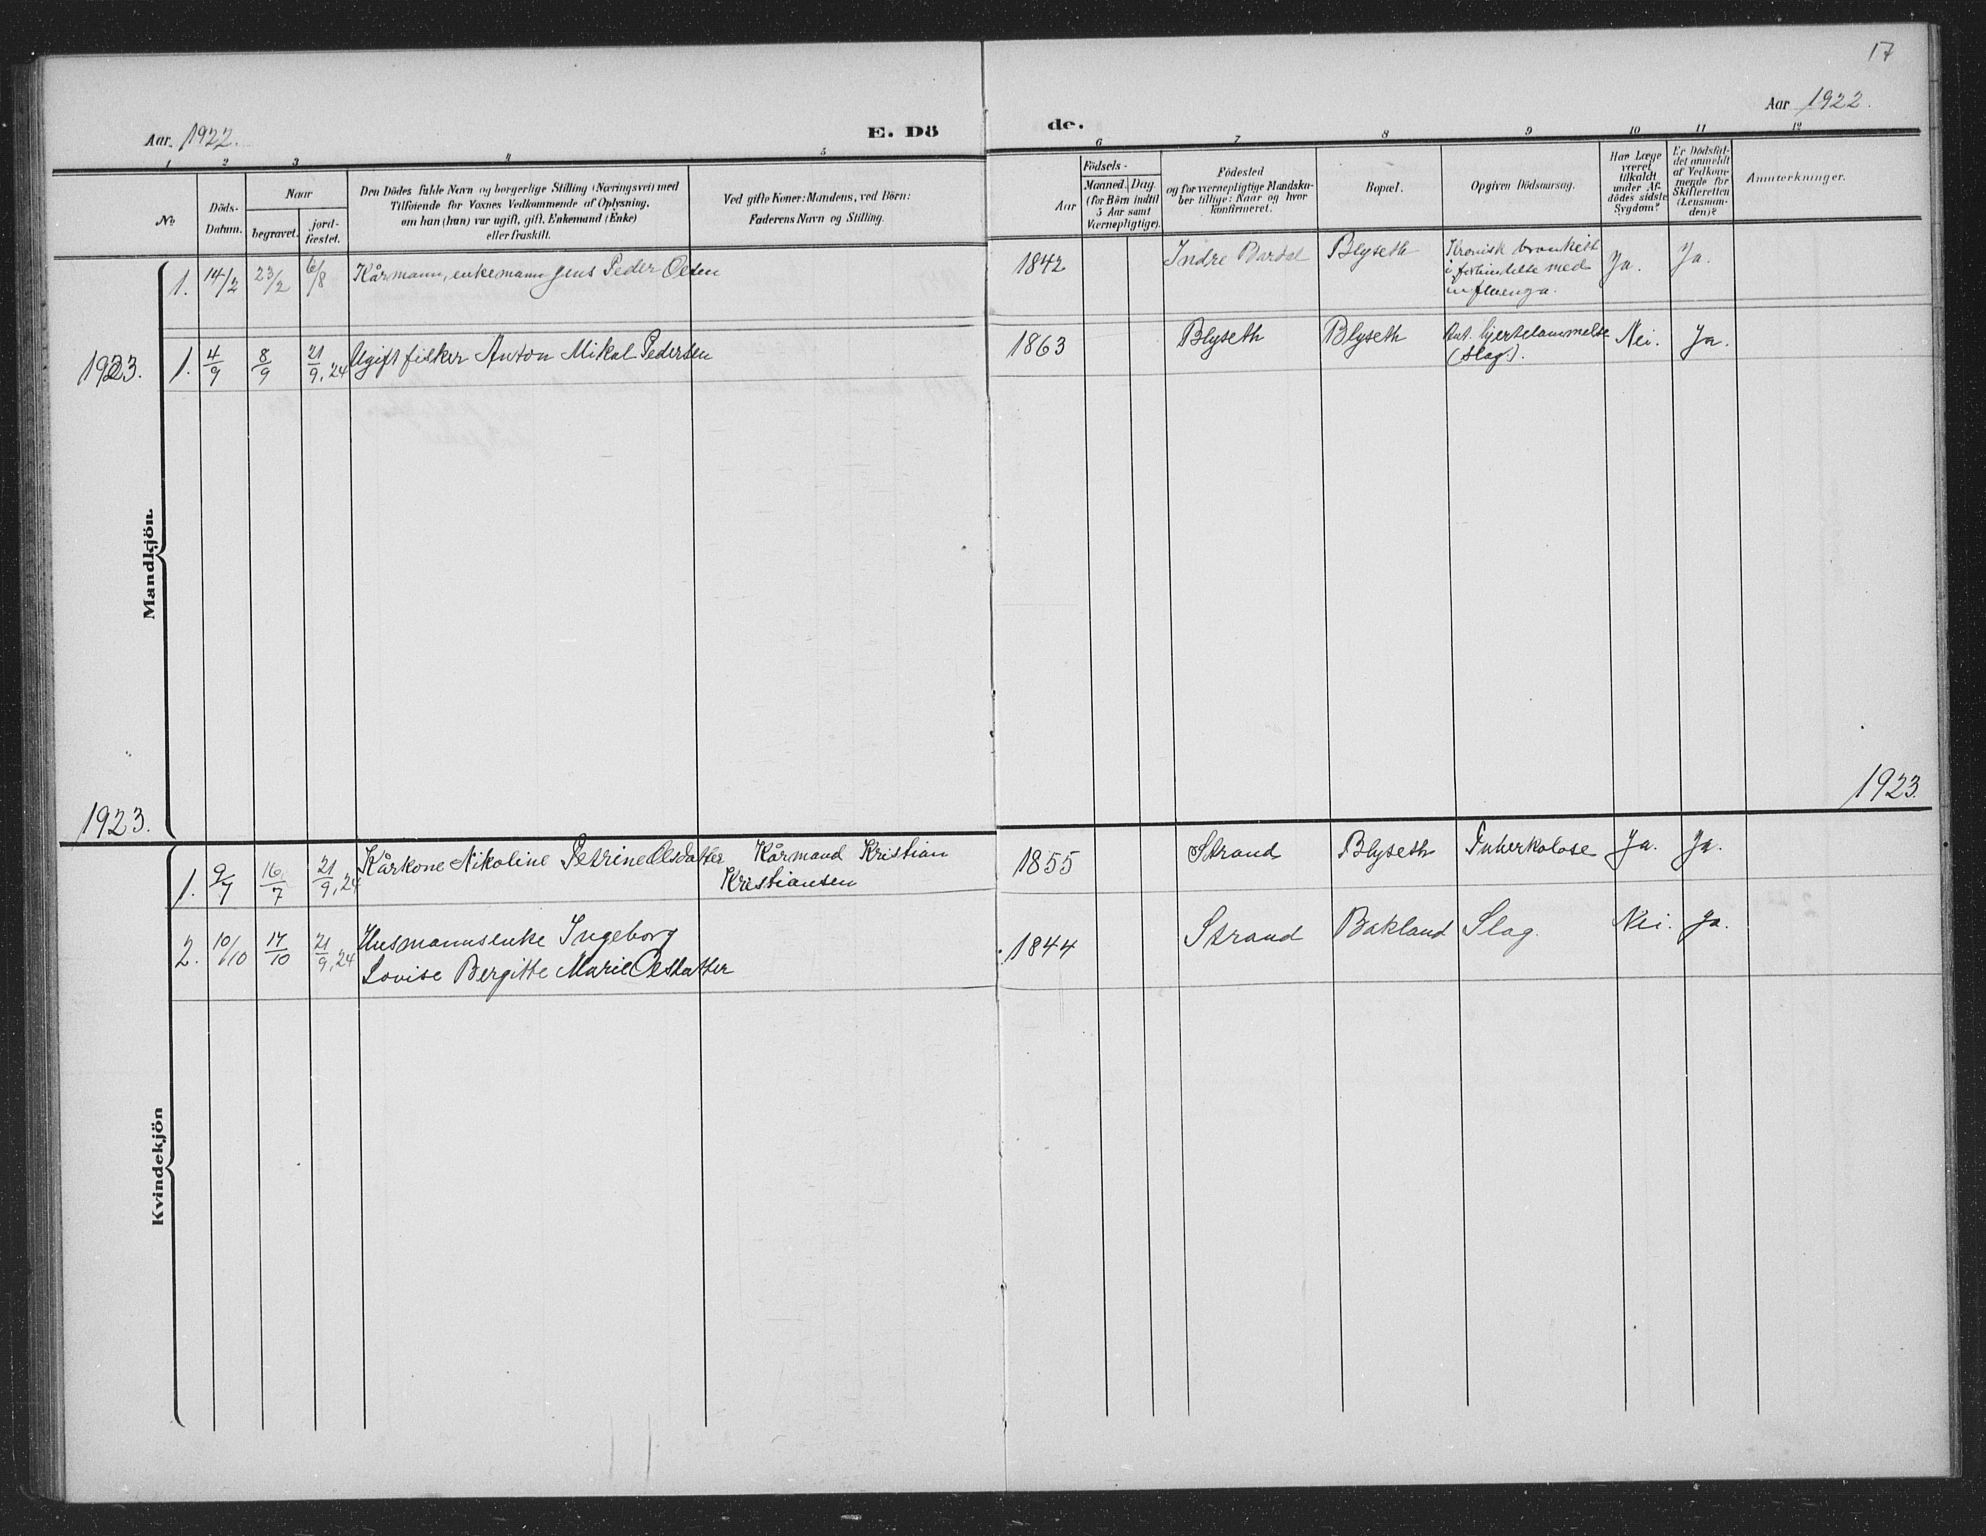 17
Aar 1922. E. Dö de. Aar 1922.
1 2 3 4 5 6 7 8 9 10 11 12
No
Döds-
Datum.
Naar
begravet.
jord-
fæstet.
Den Dödes fulde Navn og borgerlige Stilling (Næringsvei) med
Tilföiende for Voxnes Vedkommende af Oplysning,
om han (hun) var ugift, gift, Enkemand (Enke)
eller fraskilt.
Ved gifte Koner: Mandens, ved Börn:
Faderens Navn og Stilling.
Födsels-
Aar
Maaned. Dag.
(for Börn indtil
5 Aar samt
Værnepligtige).
Födested
og for værnepligtige Mandska-
ber tillige: Naar og hvor
konfirmeret.
Bopæl.
Opgiven Dödsaarsag.
Har Læge
været
tilkaldt
under Af-
dödes sidste
Sygdom?
Er Dödsfal-
det anmeldt
af Vedkom-
mende for
Skifteretten
(Lensman-
den)?
Anmærkninger.
Mandkjön.
1. 14/2 23/2 6/8 Kårmann, enkemann Jens Peder Olsen 1842 Indre Bardal Blyseth Kronisk bronkeit
i forbindelse med
influenza. Ja. Ja.
1923. 1. 4/9 8/9 21/9,24 Ugift fisker Anton Mikal Pedersen 1863 Blyseth Blyseth Ant. hjertelammelse
(slag). Nei. Ja.
1923. 1923.
Kvindekjön
1. 9/7 16/7 21/9,24 Kårkone Nikoline Petrine Olsdatter Kårmand Kristian
Kristiansen 1855 Strand Blyseth Tuberkolose Ja. Ja.
2. 10/10 17/10 21/9,24 Husmannsenke Ingeborg
Lovise Bergitte Marie Olsdatter 1844 Strand Bakland Slag. Nei. Ja.